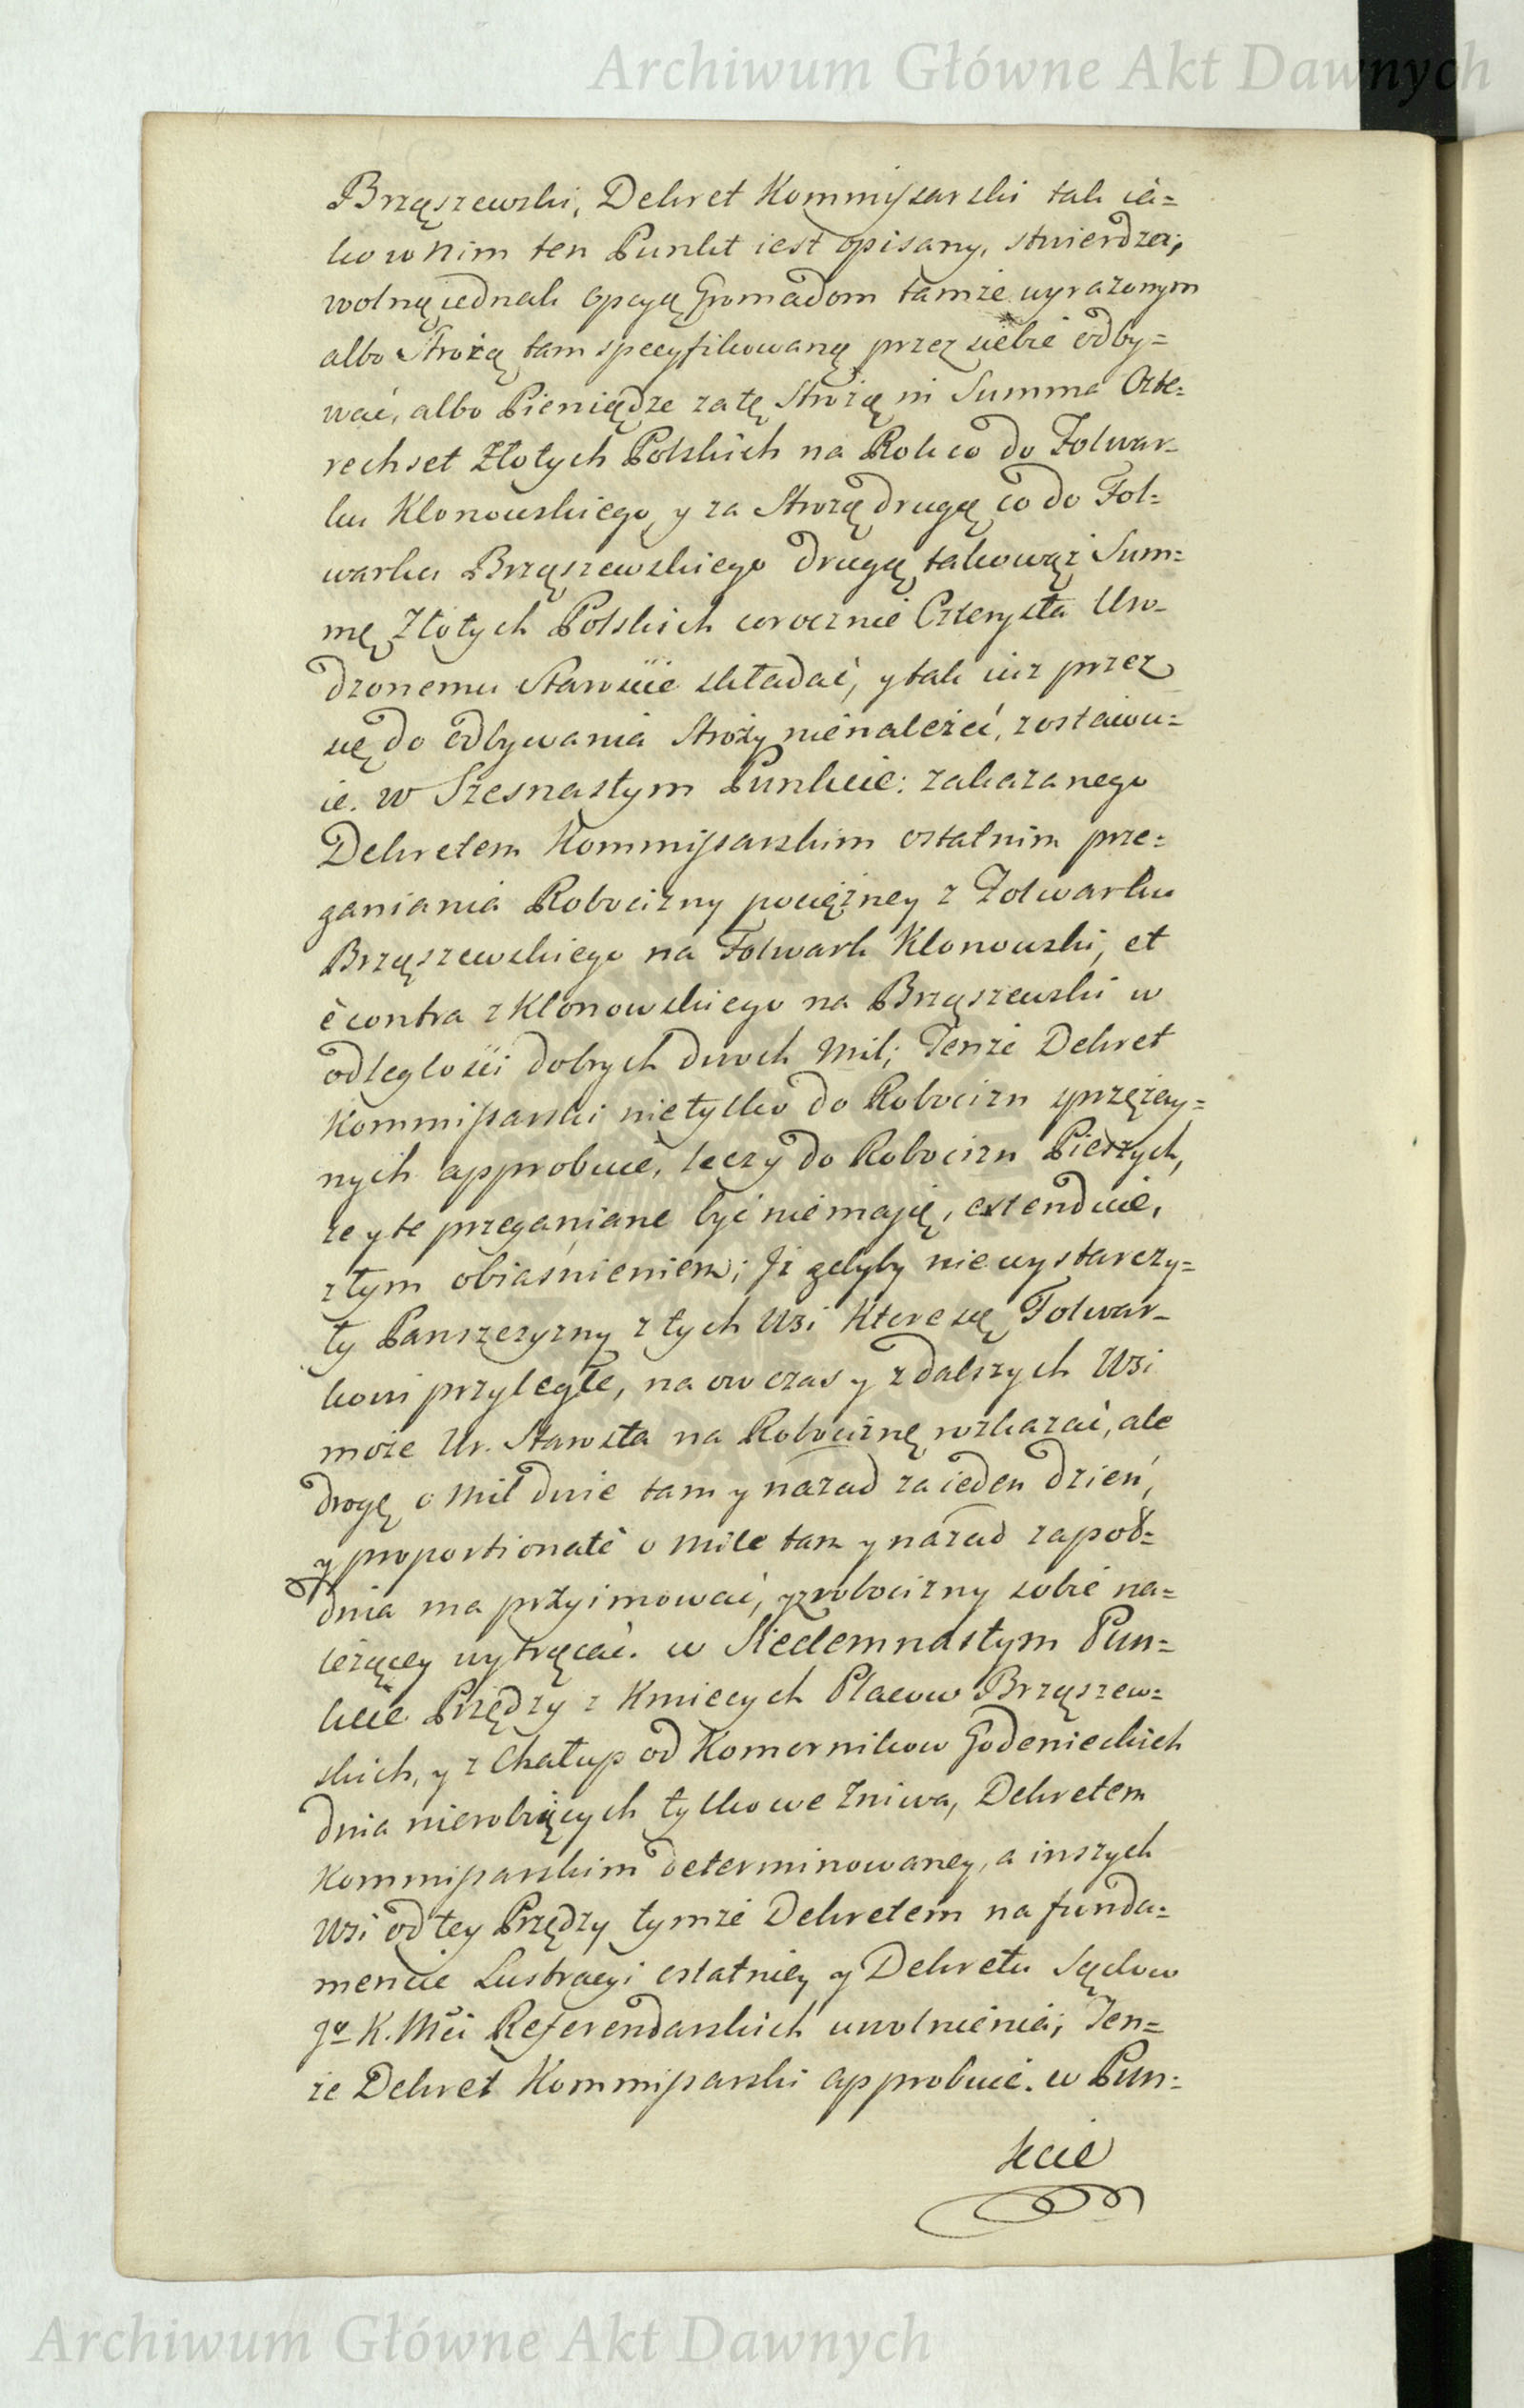 Archiwum Główne Akt Dawnych
Brząszewski, Dekret Kommissarski tak ia=
ko w nim ten Punkt iest opisany, stwierdza;
wolną iednak opcyą Gromadom tamże wyrażonym
albo Strożą tam specyfikowaną przez siebie odby=
wać, albo Pieniądze za tę Strożą in Summa Czte=
rechset Złotych Polskich na Rok co do Folwar=
ku Klonowskiego, y za Strożą drugą co do Fol=
warku Brząszewskiego drugą takowąż Sum=
mę Złotych Polskich corocznie Czterysta Uro=
dzonemu Staroście składać, y tak iuż przez
się do odbywania Stroży nienależeć, zostawu=
ie. w Szesnastym Punkcie: zakazanego
Dekretem Kommissarskim ostatnim prze=
ganiania Robocizny pociężney z Folwarku
Brząszewskiego na Folwark Klonowski, et
è contra z Klonowskiego na Brząszewski w
odległości dobrych dwoch Mil; Tenże Dekret
Kommissarski nietylko do Robocizn sprzężay=
nych approbuie, lecz y do Robocizn Pieszych,
że y te przeganiane być niemaią, extenduie,
z tym obiaśnieniem; Iż gdyby nie wystarczy=
ły Panszczyzny z tych Wsi które są Folwar=
kowi przyległe, na ow czas y z dalszych Wsi
może Ur. Starosta na Robociznę rozkazać, ale
drogę o Mil dwie tam y nazad za ieden dzień,
y proportionatè o Mile tam y nazad za poł=
dnia ma przyimować, y z robocizny sobie na=
leżącey wytrącać. w Siedemnastym Pun=
kcie Przędzy z Kmiecych Placow Brząszew=
skich, y z Chałup od Komornikow Godenieckich
dnia nierobiących tylko we Żniwa, Dekretem
Kommissarskim determinowaney, a inszych
Wsi od tey Przędzy tymże Dekretem na funda=
mencie Lustracyi ostatniey y Dekretu Sądow
Jo K. Mci Referendarskich uwolnienia; Ten=
że Dekret Kommissarski approbuie. w Pun=
kcie
Archiwum Główne Akt Dawnych